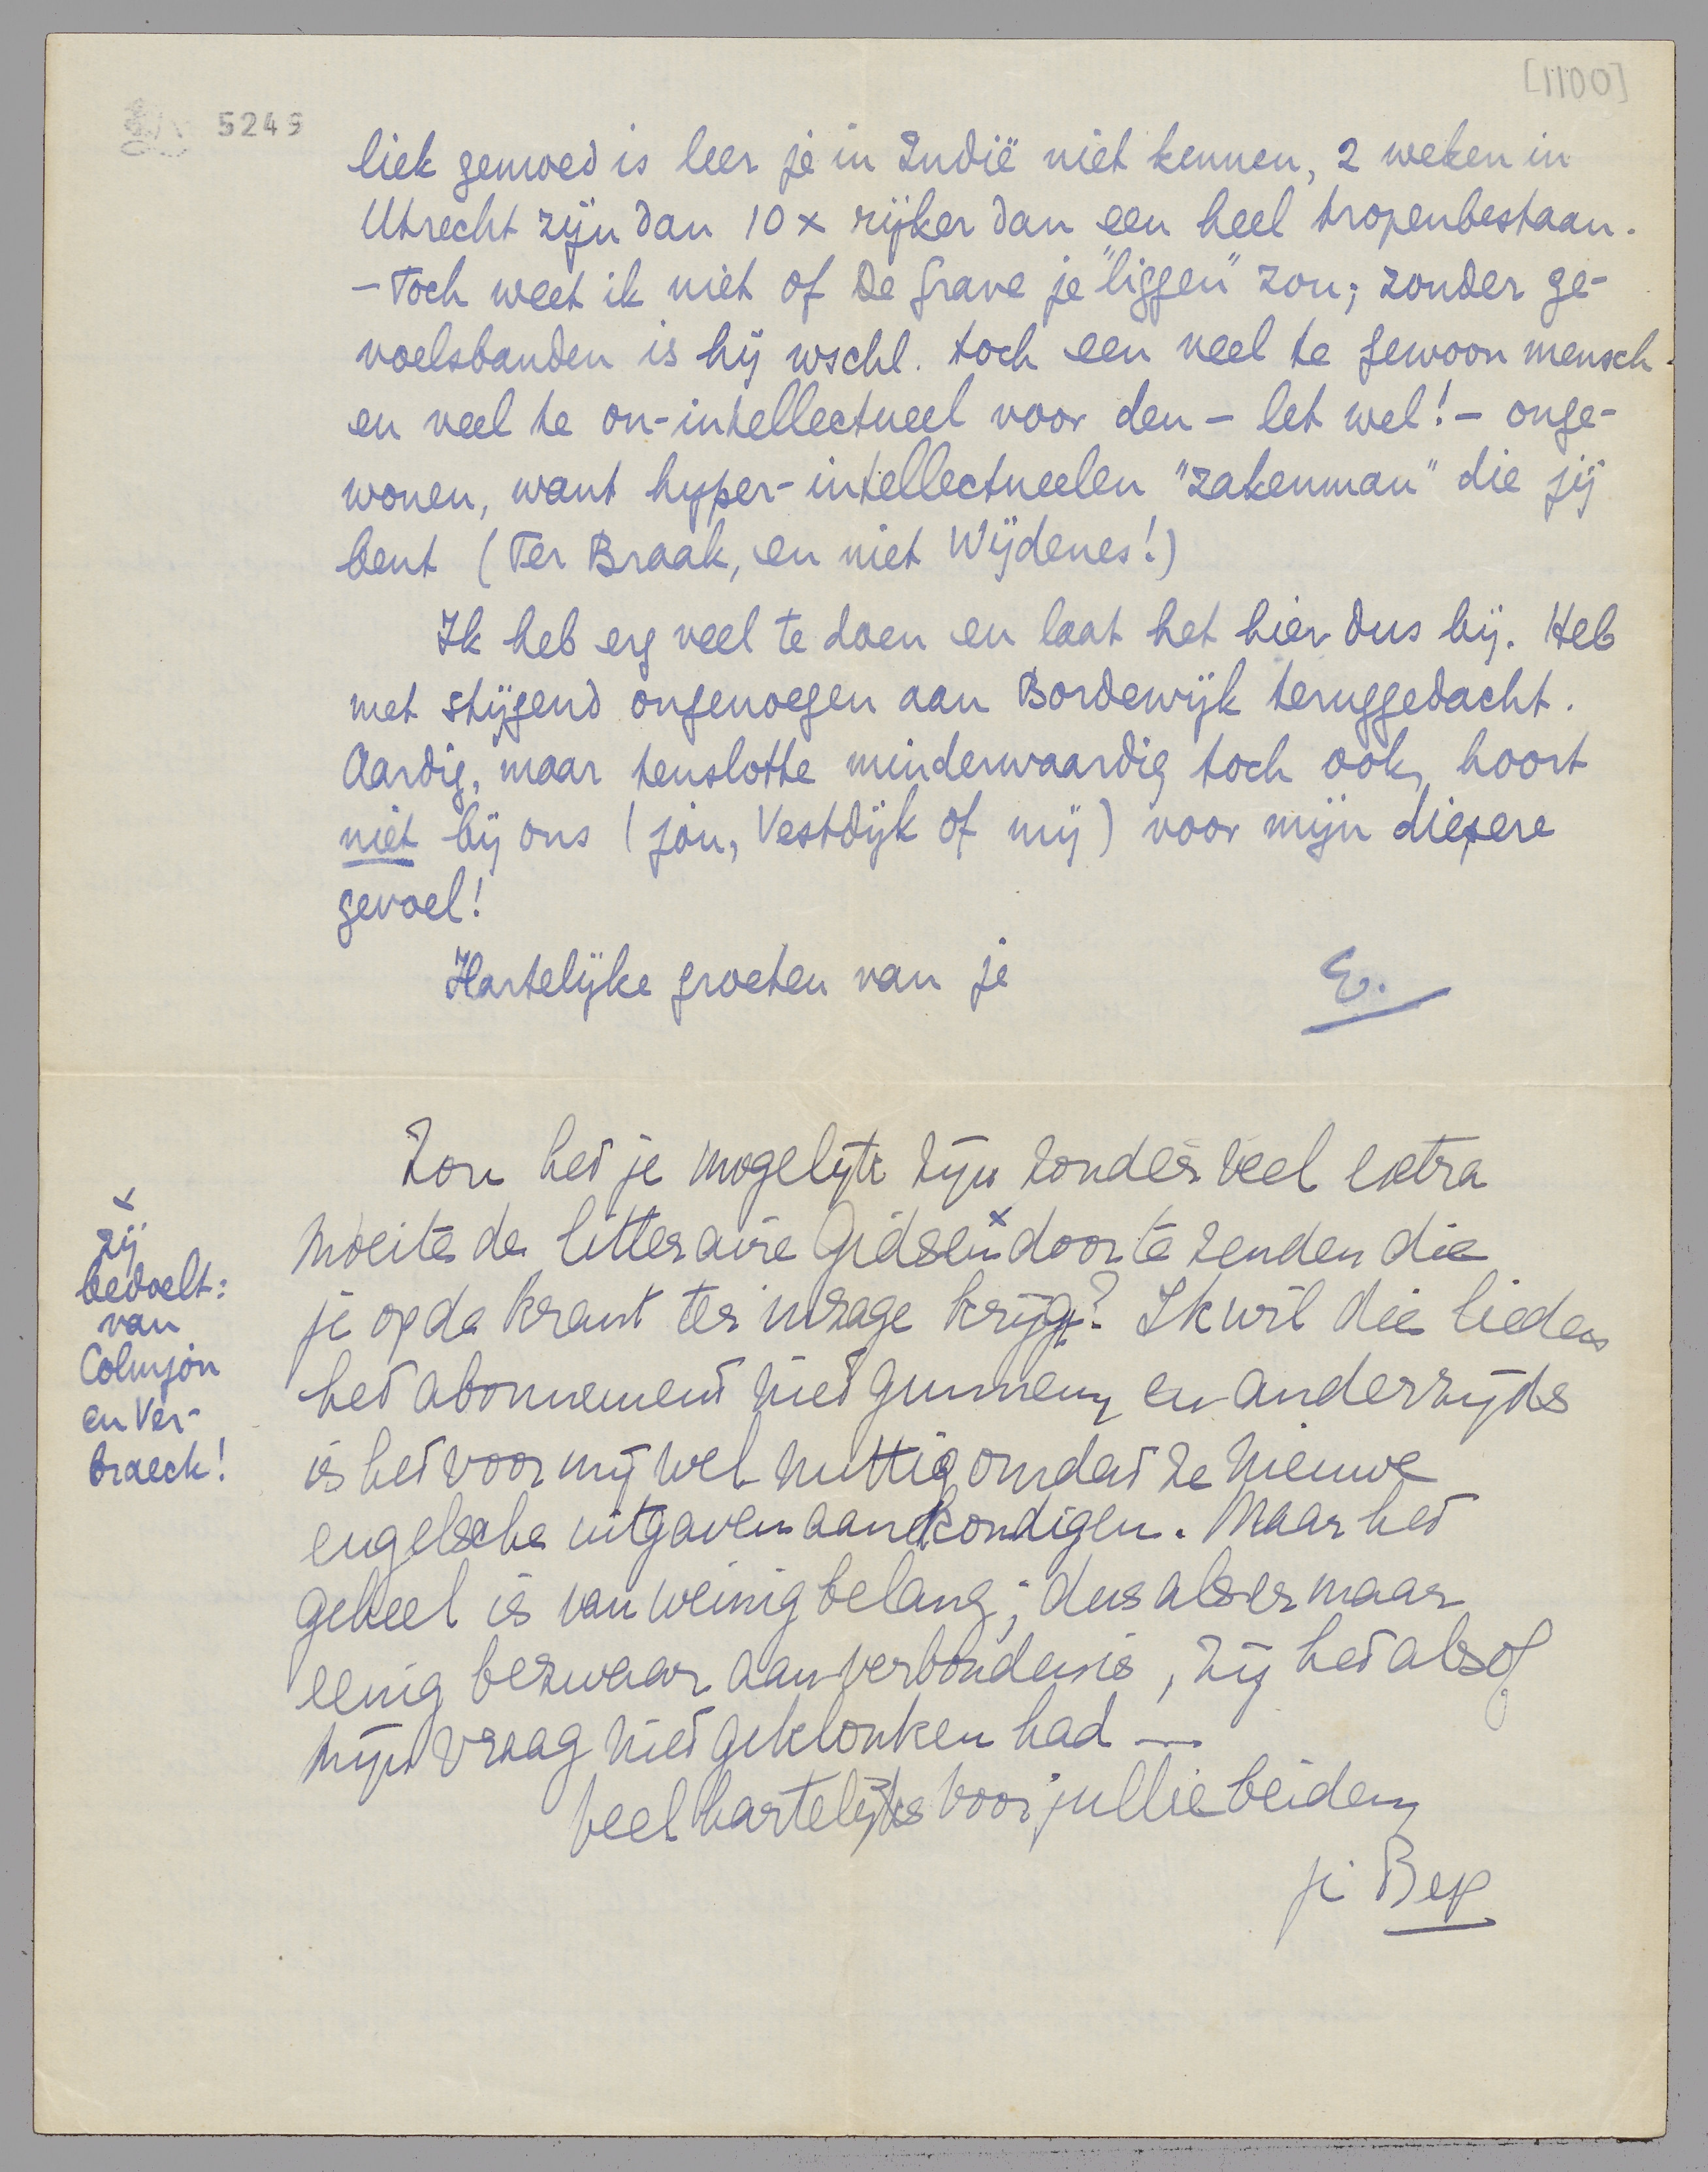 [1100]
5249
liek gemoed is leer je in Indië niet kennen, 2 weken in
Utrecht zijn dan 10 x rijker dan een heel tropenbestaan.
- Toch weet ik niet of De Grave je "liggen" zou; zonder ge-
voelsbanden is hij wschl. toch een veel te gewoon mensch.
en veel te on-intellectueel voor den - let wel! - onge-
wonen, want hyper-intellectueelen "zakenman" die jij
bent (Ter Braak, en niet Wijdenes!)
Ik heb erg veel te doen en laat het hier dus bij. Heb
met stijgend ongenoegen aan Bordewijk teruggedacht.
Aardig, maar tenslotte minderwaardig toch ook, hoort
niet bij ons (jou, Vestdijk of mij) voor mijn diepere
gevoel!
Hartelijke groeten van je
E.
Zou het je mogelijk zijn zonder veel extra
moeite de litteraire Gidsen x door te zenden die
je op de krant ter inzage krijgt? Ik wil die lieden
het abonnement niet gunnen, en anderzijds
is het voor mij wel nuttig omdat ze nieuwe
engelsche uitgaven aankondigen. Maar het
geheel is van weinig belang; dus als er maar
eenig bezwaar aan verbonden is, zij het alsof
mijn vraag niet geklonken had —
Veel hartelijks voor jullie beiden,
je Bep
x
zij
bedoelt:
van
Colmjon
en Ver-
braeck!